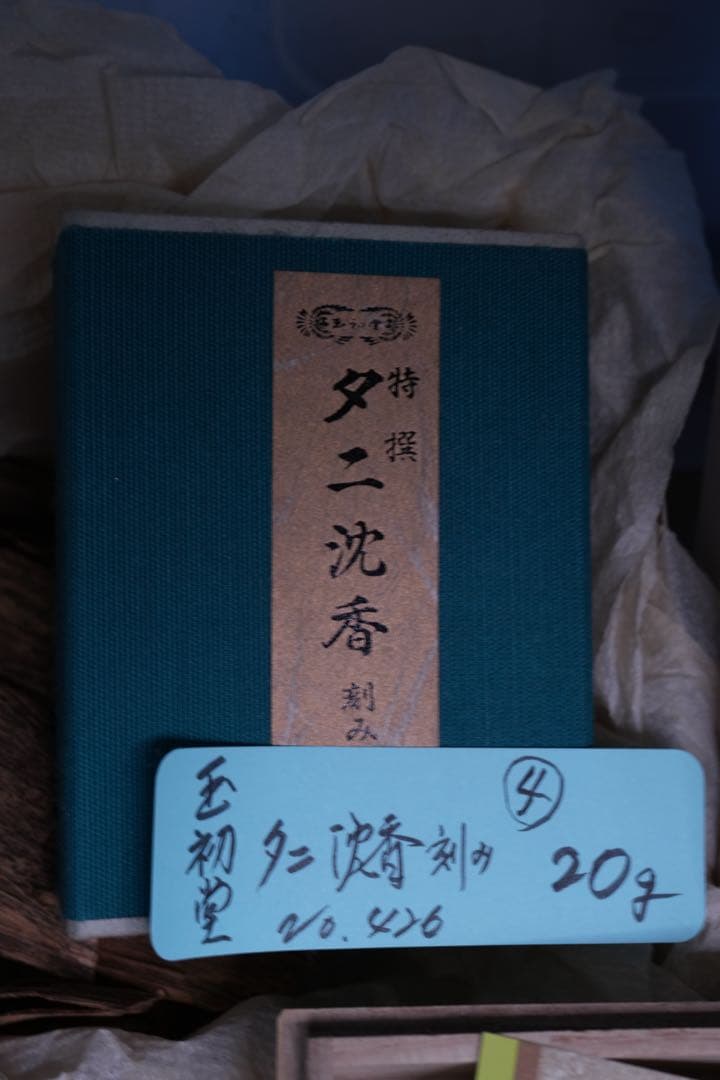 玉初堂
特撰
タニ沈香
刻み
④
玉初堂
タニ沈香刻み
20g
No.426